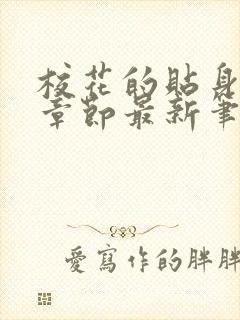 校花的貼身
章節最新筆
愛寫作的胖胖